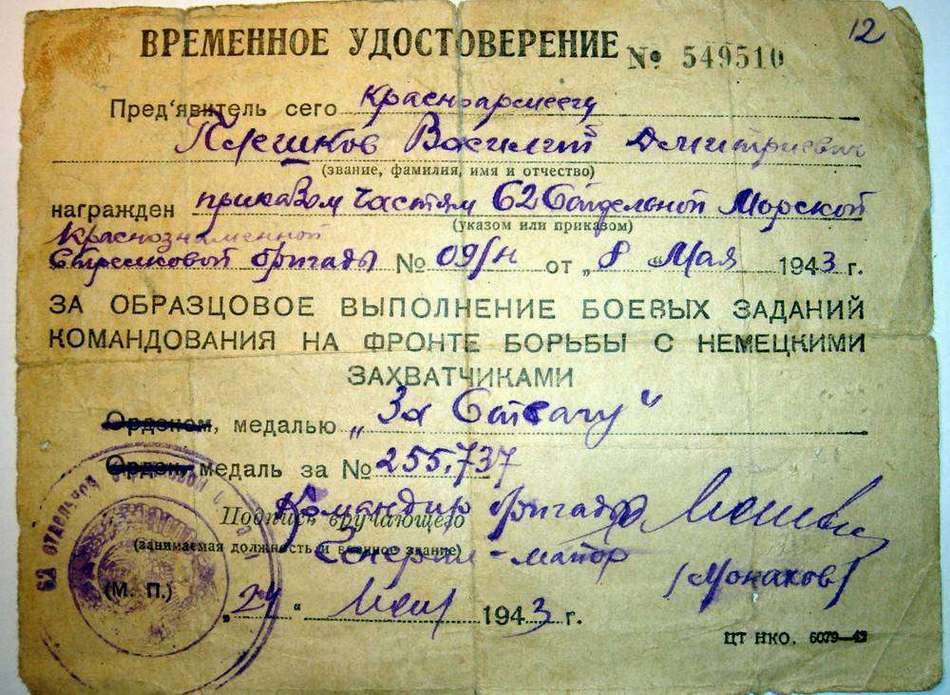 12
ВРЕМЕННОЕ УДОСТОВЕРЕНИЕ № 549510
Пред'явитель сего Красноармеец
Василий Дмитриевич
(звание, фамилия, имя и отчество)
награжден приказом частям 62 Отдельной Морской
(указом или приказом)
Краснознаменной
Стрелковой бригады № 09/н от „8 " Мая 1943 г.
ЗА ОБРАЗЦОВОЕ ВЫПОЛНЕНИЕ БОЕВЫХ ЗАДАНИЙ
КОМАНДОВАНИЯ НА ФРОНТЕ БОРЬБЫ С НЕМЕЦКИМИ
ЗАХВАТЧИКАМИ
Орденом, медалью „За Отвагу"
Орден, медаль за № 255.737
Командир бригады
Подпись вручающего
(занимаемая должность и военное звание)
Генерал-майор
(Монахов)
(М. П.)
1943 г.
ЦТ НКО. 6079—43
62 ОТДЕЛЬНОЙ